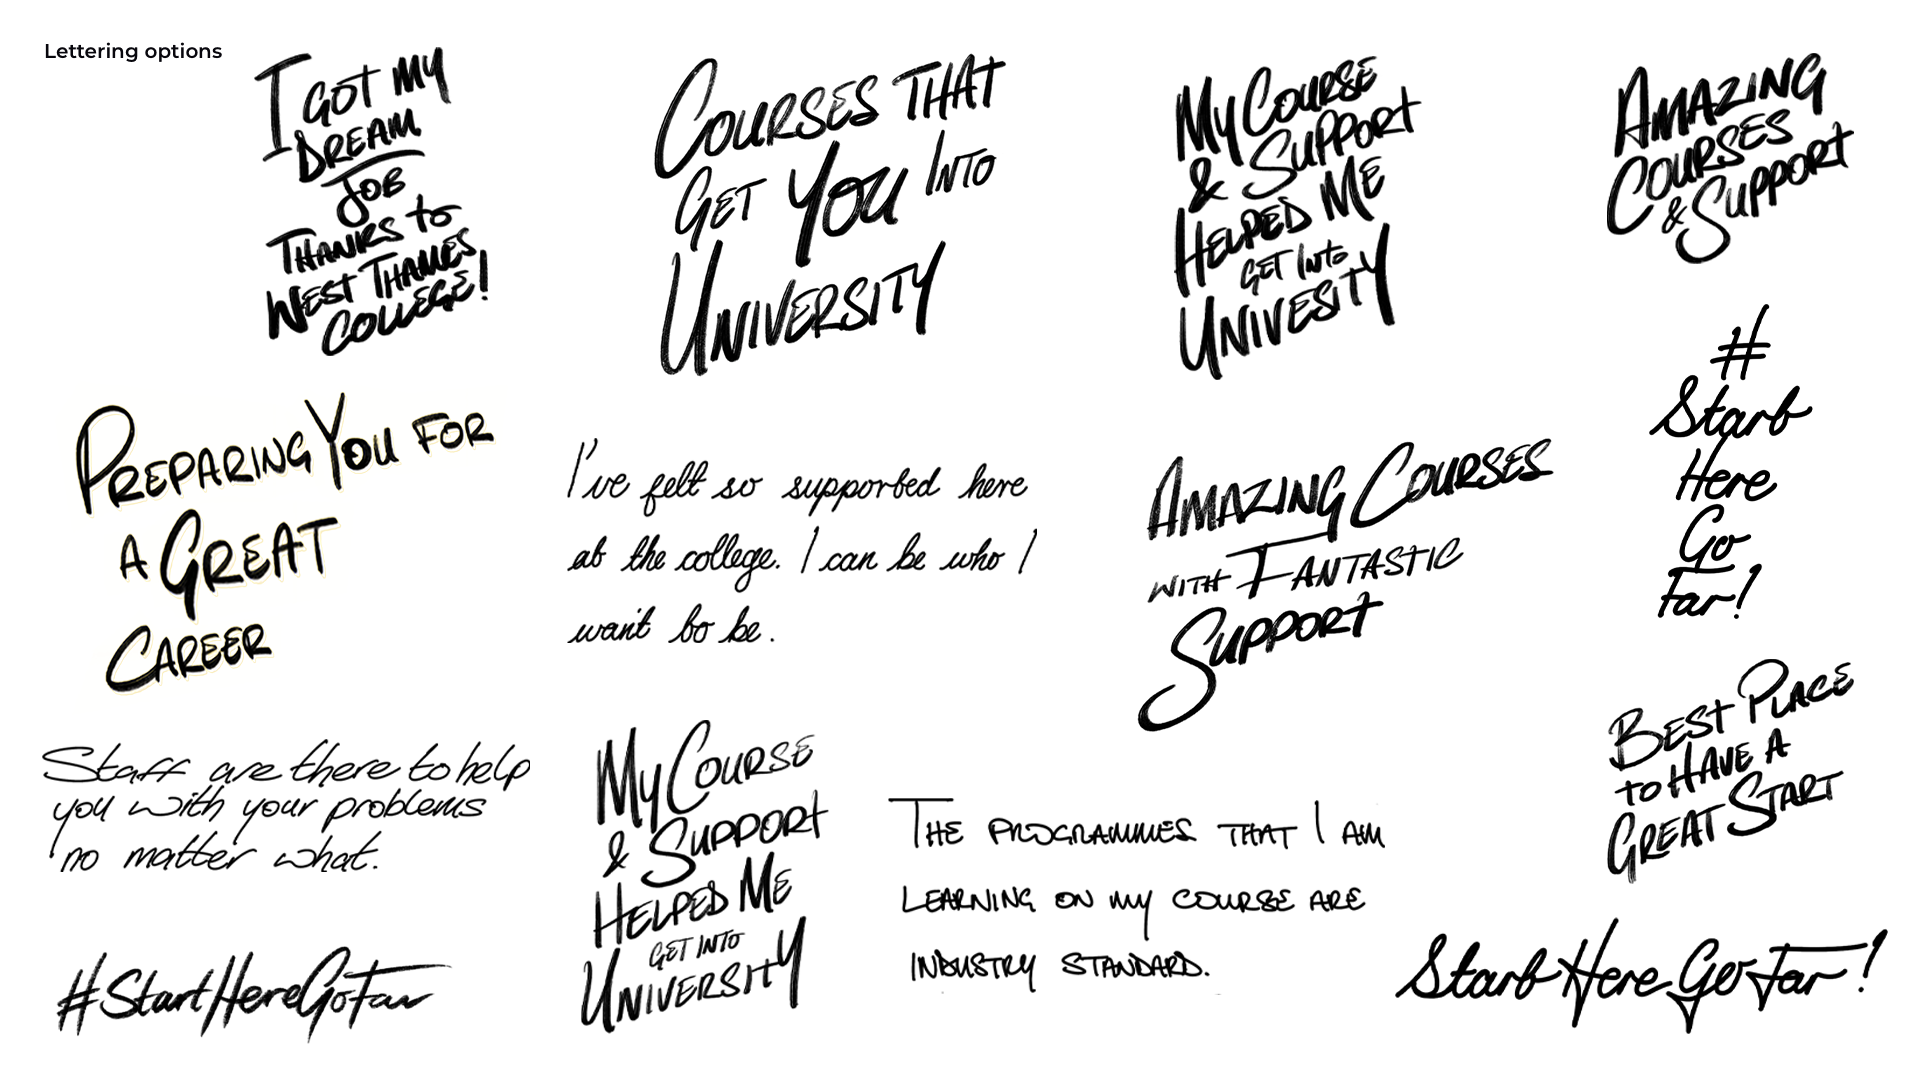 Lettering options
I GOT MY
DREAM
JOB
THANKS to
WEST THAMES
COLLEGE!
COURSES THAT
GET YOU INTO
UNIVERSITY
MY COURSE
& SUPPORT
HELPED ME
GET INTO
UNIVESITY
AMAZING
COURSES
& SUPPORT
#
Start
Here
Go
Far!
PREPARING YOU FOR
A GREAT
CAREER
I've felt so supported here
at the college. I can be who I
want to be.
AMAZING COURSES
WITH FANTASTIC
SUPPORT
BEST PLACE
to HAVE A
GREAT START
Staff are there to help
you with your problems
no matter what.
MY COURSE
& SUPPORT
HELPED ME
GET INTO
UNIVERSITY
THE PROGRAMMES THAT I AM
LEARNING ON MY COURSE ARE
INDUSTRY STANDARD.
#StartHereGoFar
Start Here Go Far!